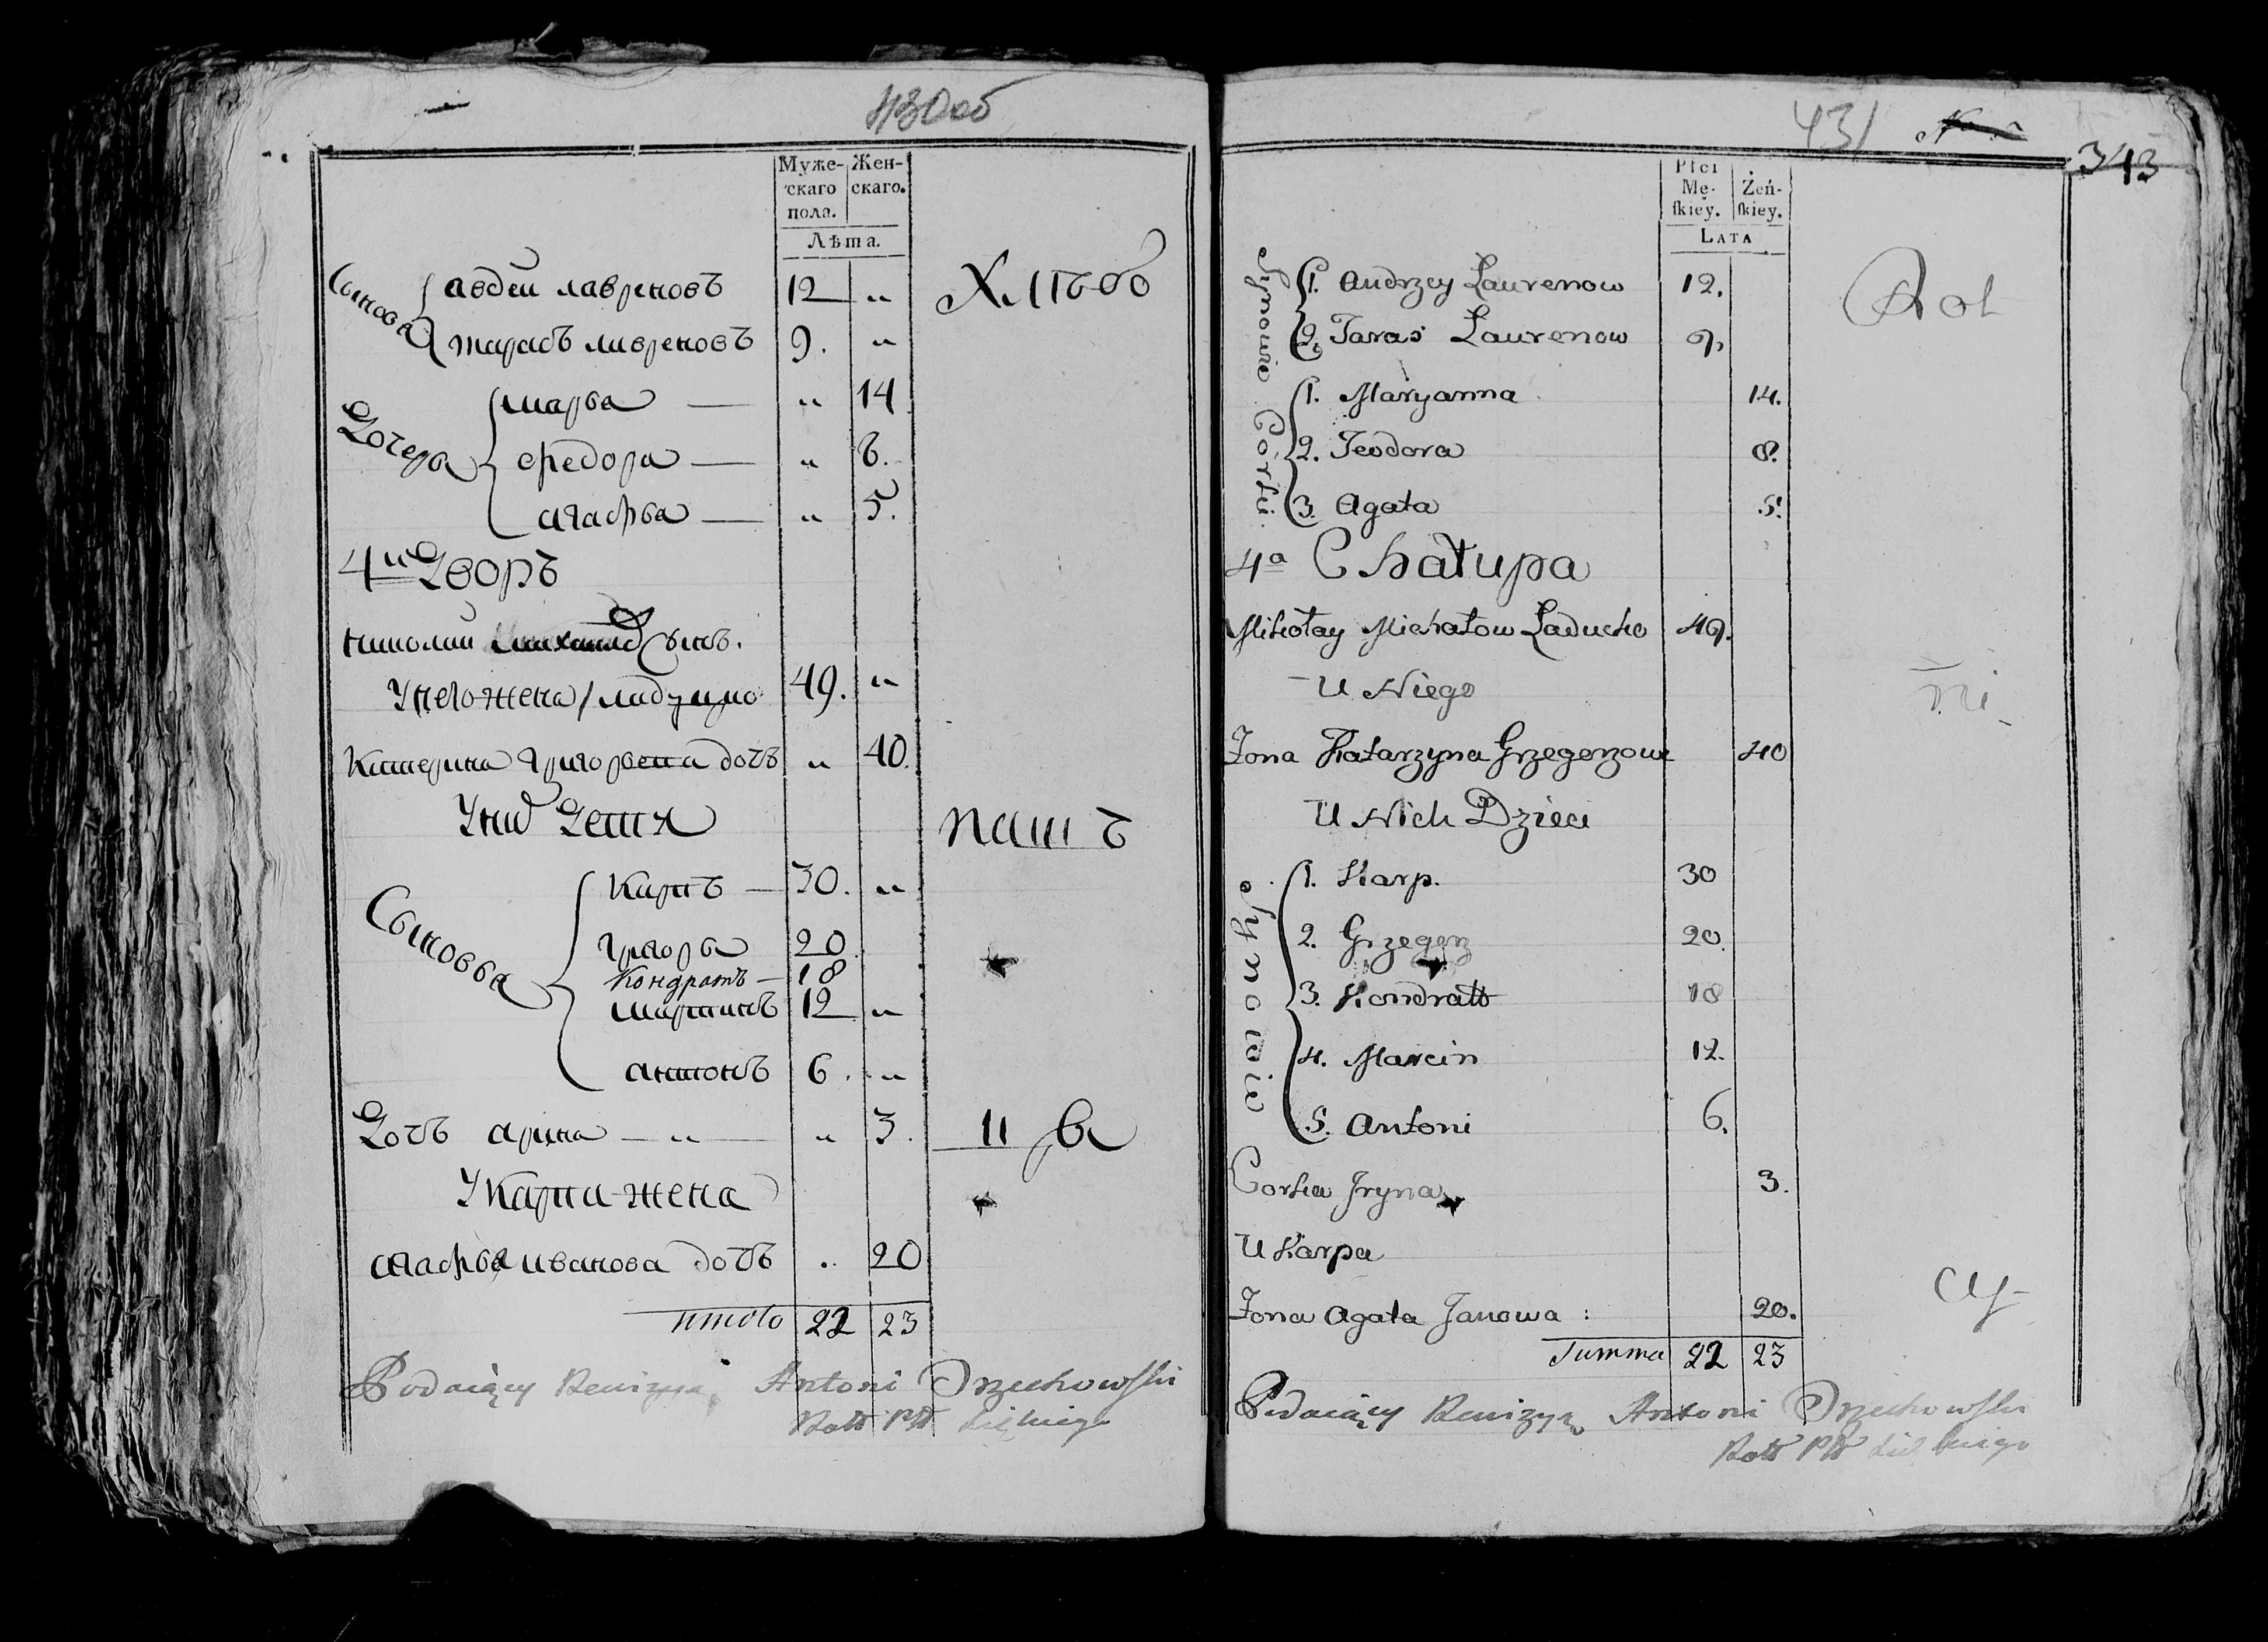 430об
Муже- Жен-
скаго скаго.
пола.
Лѣта.
Сыновя
авдей лавреновъ 12 „
тарасъ лавреновъ 9. „
Хлѣбо
Дочеря
марва — „ 14
ѳедора — „ 8.
агафва — „ 5.
4й Дворъ
николай михайлов Сынъ.
Унего жена / ладушко 49. „
Катерина григорвена дочъ „ 40.
Уних Дети
пашъ
Сыновва
Карпъ — 30. „
григорь 20.
Кондратъ — 18
мартинъ 12 „
антонъ 6. „
Дочъ арина — „ — „ 3.
Укарпа жена
агафва иванова дочъ .. 20
итого 22 23
Podaiący Rewizyą Antoni Orzechowski
431
343
Płci
Mę- Żeń-
skiey. skiey.
LATA
Synowie
1. Andrzey Laurenow 12.
2. Taras Laurenow 9.
Córki.
1. Maryanna 14.
2. Teodora 8.
3. Agata 5.
4a Chałupa
Mikołay Michałow Laducho 49.
U Niego
Żona Katarzyna Grzegorzowa 40
U Nich Dzieci
Synowie
1. Karp. 30
2. Grzegorz 20.
3. Kondratt 18
4. Marcin 12.
5. Antoni 6.
Corka Iryna 3.
U Karpa
Żona Agata Janowa : 20.
Summa 22 23
Podaiący Rewizyą Antoni Orzechowski